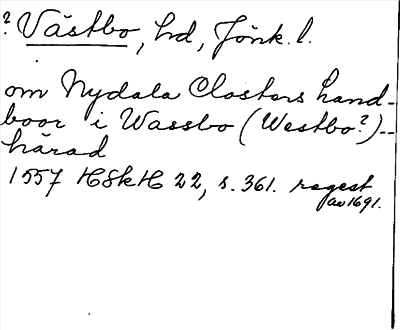 ? Västbo, hd, Jönk. l.
om Nydala Closters land-
boor i Wassbo (Westbo?)--
härad
1557 HSkH 22, s. 361. regest
av 1691.